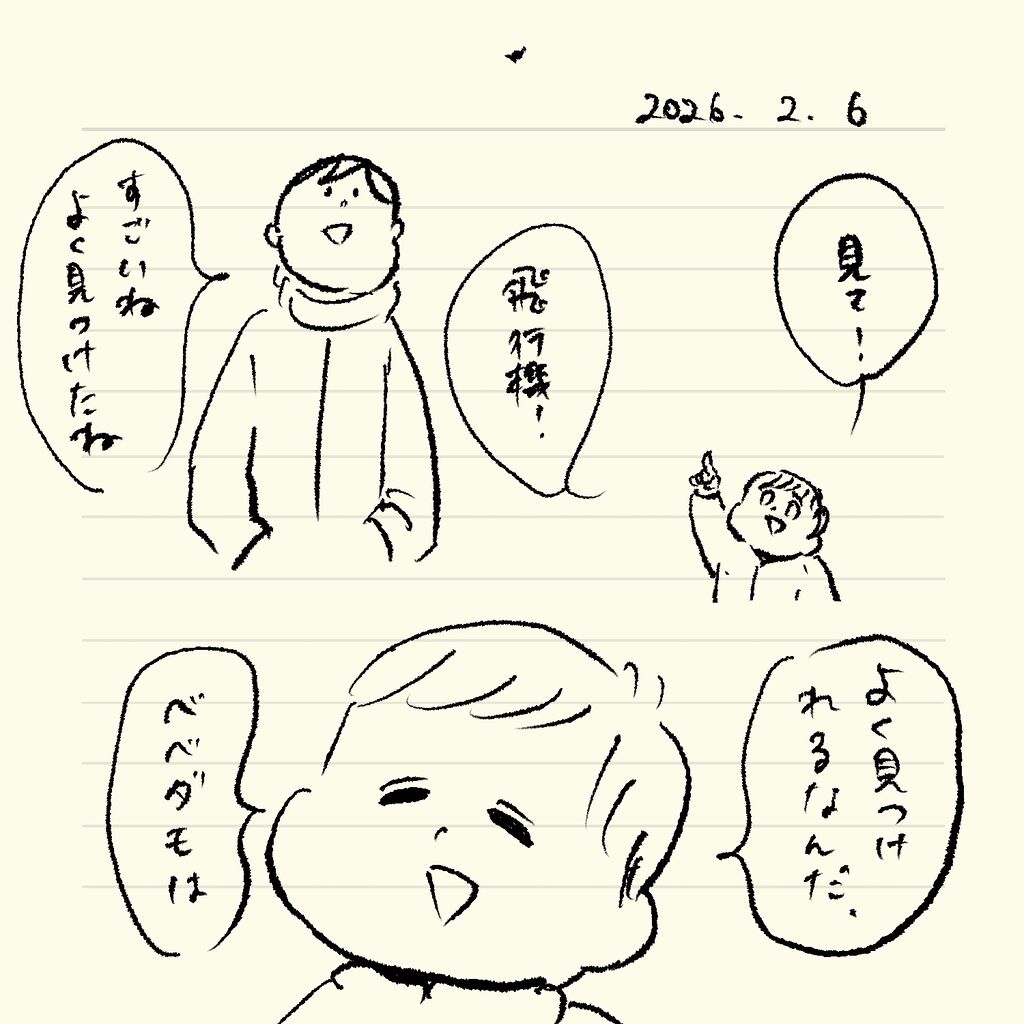 2026. 2. 6
見て!
飛行機!
すごいね
よく見つけたね
よく見つけ
れるなんだ、
べべダモは